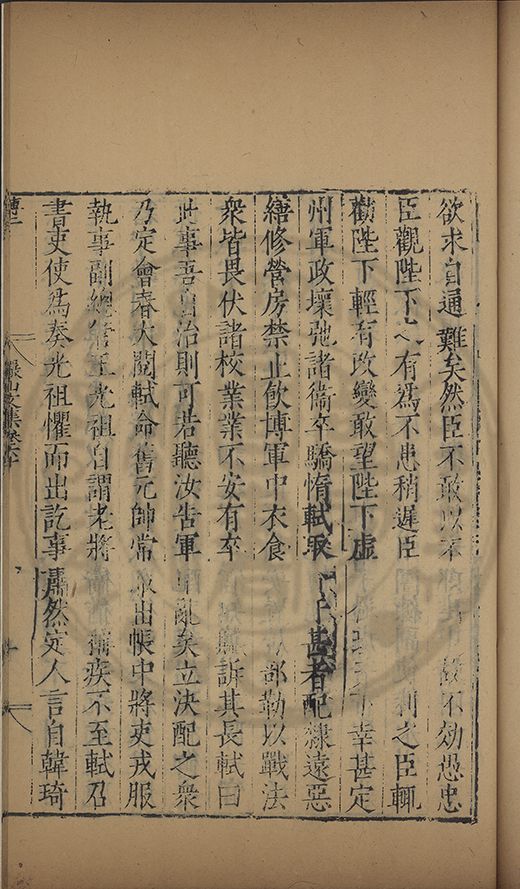 欲求自通難矣然臣不敢以不不効愚忠
臣觀陛下之有為不患稍遲臣利之臣輒
勸陛下輕有改變敢望陛下虛幸甚定
州軍政壞弛諸衞卒驕惰軾取甚者配隸遠惡
繕修營房禁止飲博軍中衣食部勒以戰法
衆皆畏伏諸校業業不安有卒訴其長軾曰
此事吾自治則可若聽汝告軍亂矣立決配之衆
乃定會春大閱軾命舊元帥常出帳中將吏戎服
執事副總管王光祖自謂老將稱疾不至軾召
書吏使為奏光祖懼而出訖事肅然定人言自韓琦